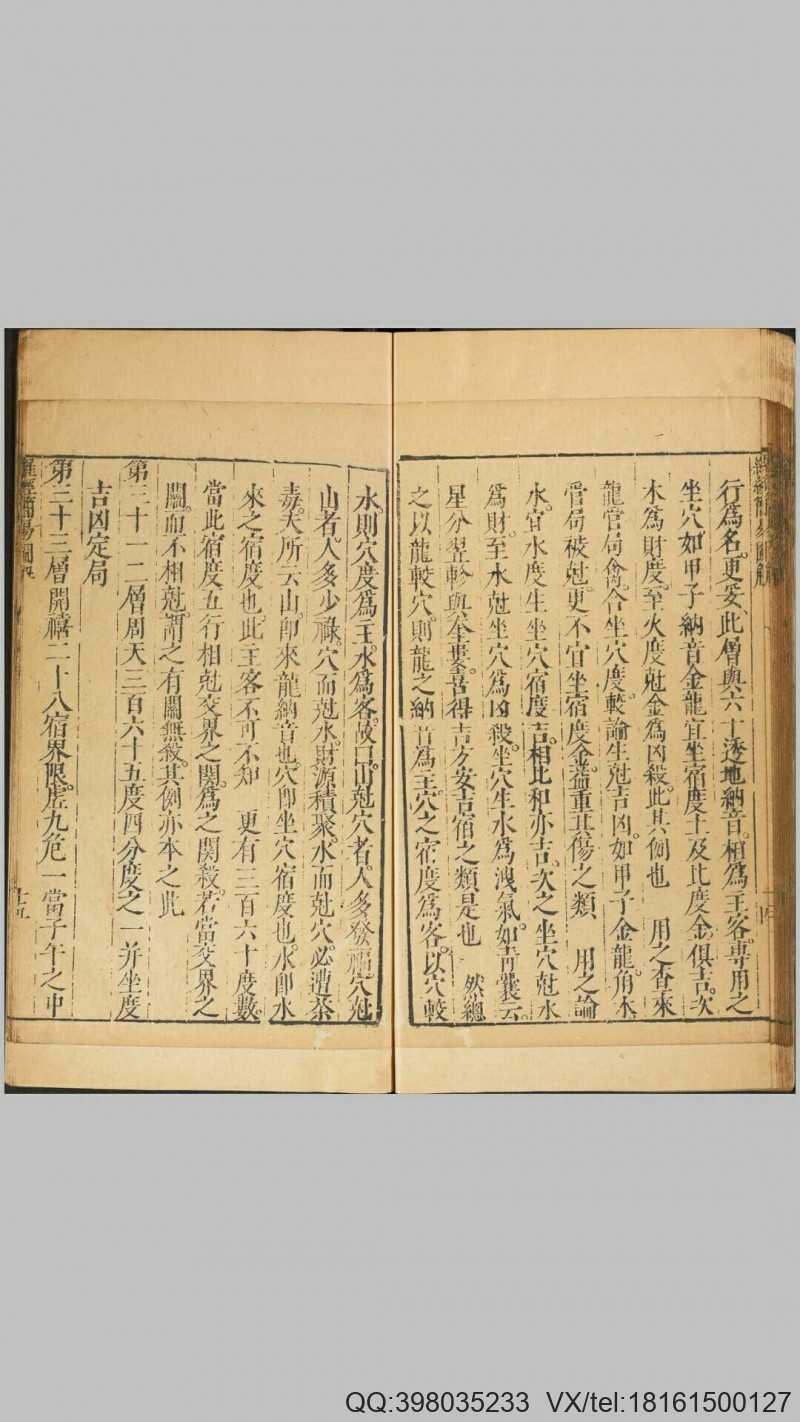 行為名更妥此層與六十透地納音相為主客專用之
坐穴如甲子納音金龍宜坐宿度土及比度金俱吉次
木為財度至火度尅金為凶殺此其例也 用之查來
龍官局禽合坐穴度較論生尅吉凶如甲子金龍角木
管局被尅更不宜坐宿度金益重其傷之類 用之論
水宜水度生坐穴宿度吉相比和亦吉次之坐穴尅水
為財至水尅坐穴為凶殺坐穴生水為洩氣如青囊云
星分翌軫與奎婁喜得吉方安吉宿之類是也 然總
之以龍較穴則龍之納音為主穴之宿度為客以穴較
水則穴度為主水為客故曰山尅穴者人多發福穴尅
山者人多少祿穴而尅水財源積聚水而尅穴必遭荼
毒夫所云山即來龍納音也穴即坐穴宿度也水即水
來之宿度也此主客不可不知 更有三百六十度數
當此宿度五行相尅交界之關為之関殺若當交界之
關而不相尅謂之有關無殺其例亦本之此
第三十一二層周天三百六十五度四分度之一并坐度
吉凶定局
第三十三層開禧二十八宿界限虛九危一當子午之中
羅經簡易圖解
十五
QQ:398035233 VX/tel:18161500127